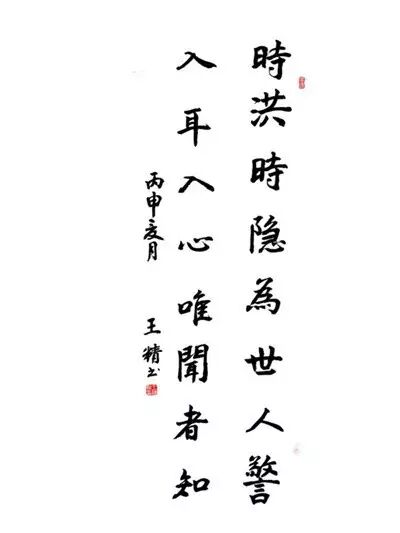 時洪時隐為世人警
入耳入心唯聞者知
丙申亥月
王精书